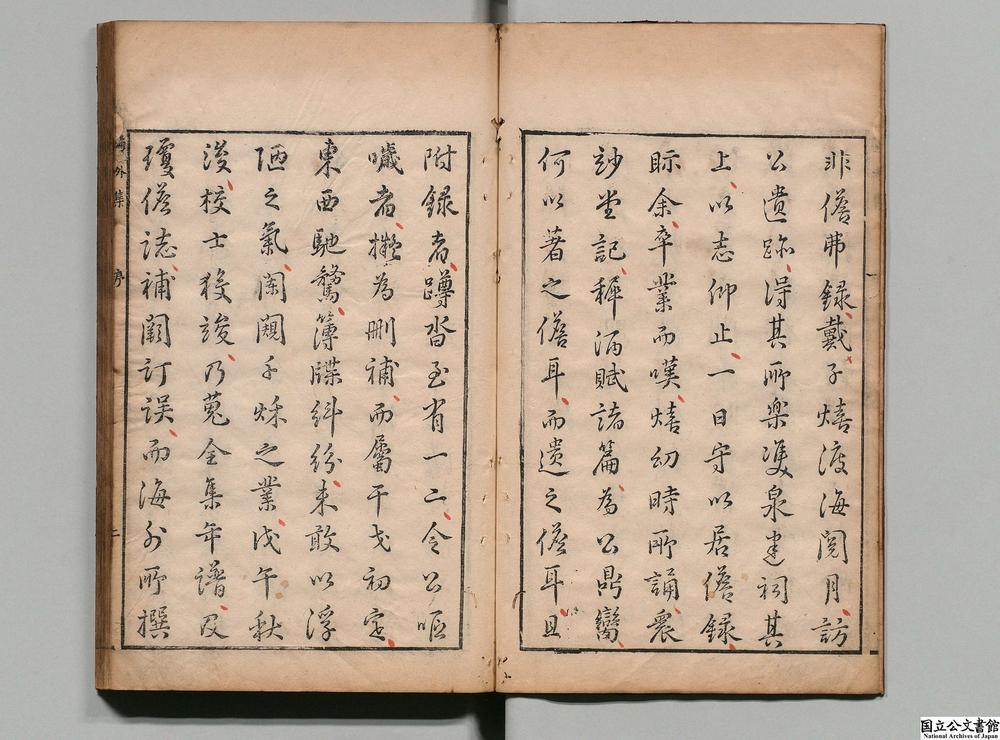 非儋弗録戴子熺渡海閲月訪
公遺跡得其所樂雙泉建祠其
上以志仰止一日守以居儋録
眎余卒業而嘆熺幼時所誦衆
玅堂記稱酒賦諸篇為公鼎臠
何以著之儋耳而遺之儋耳且
附録者蹲沓至有一二令公嘔
噦者擬為刪補而屬干戈初定
東西馳騖簿牒糾紛未敢以浮
陋之氣闌閲千秌之業戊午秋
浚校士發竣乃蒐全集年譜及
瓊儋誌補闕訂誤而海外所撰
海外集 序 二
国立公文書館
National Archives of Japan